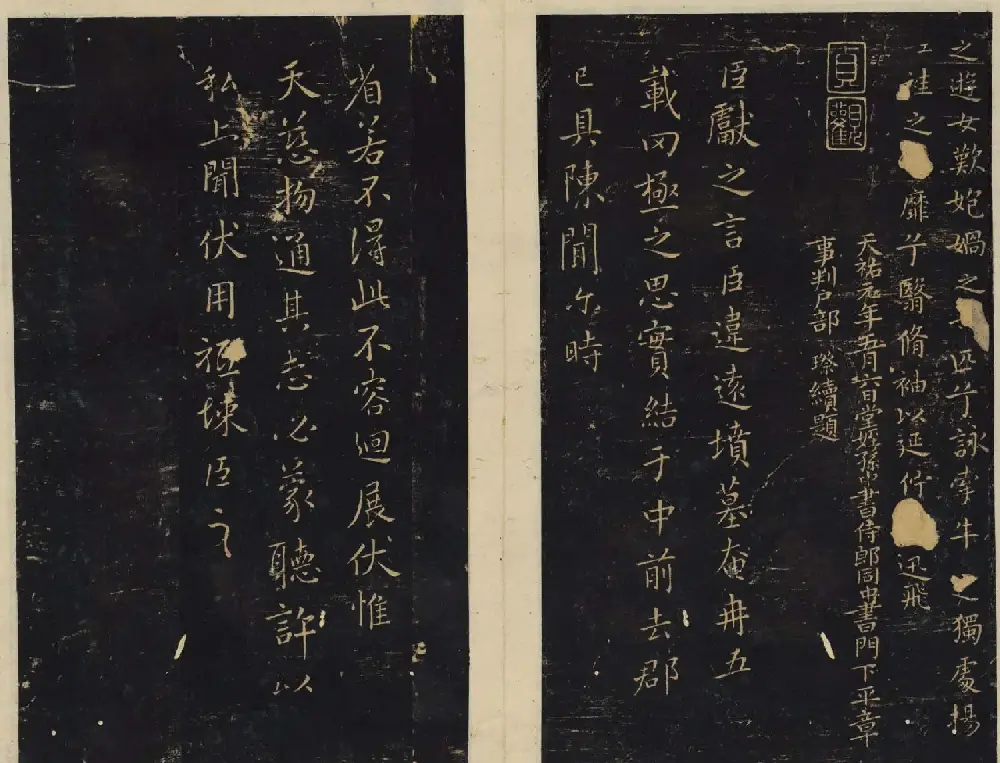 之遊女歎匏媧之 匹兮詠牽牛之獨處揚
袿之 靡兮翳脩袖以延佇 迅飛
天祐元年五月六日堂姪孫中書侍郎同中書門下平章
事判戶部 璨續題
貞觀
臣獻之言臣違遠墳墓奄冉五
載罔極之思實結于中前去郡
已具陳聞尔時
省若不得此不容迴展伏惟
天慈物通其志必蒙聽許以
私上聞伏用 悚臣之